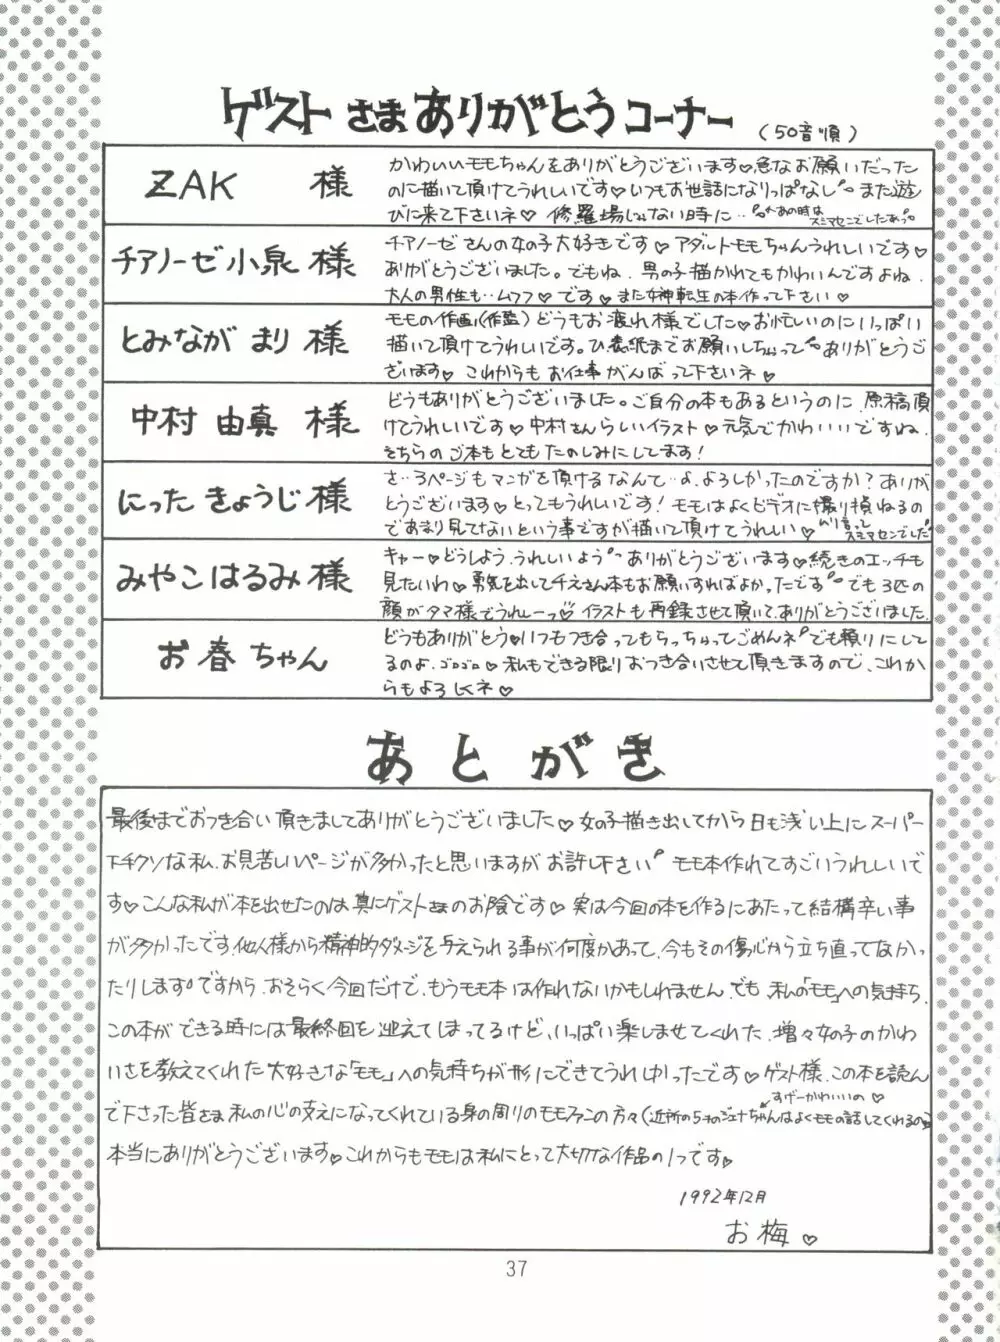 ゲストさまありがとうコーナー (50音順)
ZAK 様
かわいいモモちゃんをありがとうございます♡急なお願いだった
のに描いて頂けてうれしいです♡いつもお世話になりっぱなし また遊
びに来て下さいネ♡ 修羅場じゃない時に‥ あの時は
スミマセンでしたぁっ
チアノーゼ小泉 様
チアノーゼさんの女の子大好きです♡アダルトモモちゃんうれしいです♡
ありがとうございました。でもね、男の子描かれてもかわいんですよね、
大人の男性も‥ムフフ♡です♡また女神転生の本作って下さい♡
とみなが まり 様
モモの作画(作監)どうもお疲れ様でした♡お忙しいのにいっぱい
描いて頂けてうれしいです。ひ表紙までお願いしちゃって ありがとうご
ざいます♡ これからも お仕事がんばって下さいネ♡
中村 由真 様
どうもありがとうございました。ご自分の本もあるというのに、原稿頂
けてうれしいです♡中村さんらしいイラスト♡元気でかわいいですね、
そちらのご本もとてもたのしみにしてます!
にった きょうじ 様
さ‥3ページもマンガを頂けるなんて‥よ、よろしかったのですか?ありが
とうございます♡とってもうれしいです! モモはよくビデオに撮り損ねるの
であまり見てないという事ですが描いて頂けてうれしい♡ ムリ言って
スミマセンでした
みやこはるみ 様
キャー♡どうしよう、うれしいよう ありがとうございます♡続きのエッチも
見たいわ♡勇気を出してチえさん本もお願いすればよかったです でも3匹の
顔がタマ様でうれしーっ♡イラストも再録させて頂いて、ありがとうございました。
お春ちゃん
どうもありがとう♡いつもつき合ってもらっちゃってごめんネ でも頼りにして
るのよ、ゴロゴロ♡私もできる限りおつき合いさせて頂きますので、これか
らもよろしくネ♡
あとがき
最後までおつき合い頂きましてありがとうございました♡女の子描き出してから日も浅い上にスーパー
下手クソな私、お見苦しいページが多かったと思いますがお許し下さい モモ本作れてすごいうれしいで
す♡こんな私が本を出せたのは真にゲストさまのお陰です♡実は今回の本を作るにあたって結構辛い事
が多かったです。他人様から精神的ダメージを与えられる事が何度かあって、今もその傷心から立ち直ってなかっ
たりします ですから、おそらく今回だけで、もうモモ本は作れないかもしれません。でも、私の「モモ」への気持ち、
この本ができる時には最終回を迎えてしまってるけど、いっぱい楽しませてくれた、増々女の子のかわ
いさを教えてくれた大好きな「モモ」への気持ちが形にできてうれしかったです♡ゲスト様、この本を読ん
すげーかわいいの♡
で下さった皆さま、私の心の支えになってくれている身の周りのモモファンの方々(近所の5才のジュナちゃんはよくモモの話してくれるの)
本当にありがとうございます♡これからもモモは私にとって大切な作品の1つです♡
1992年12月
お梅♡
37